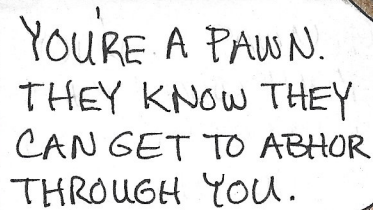 YOU'RE A PAWN.
THEY KNOW THEY
CAN GET TO ABHOR
THROUGH YOU.